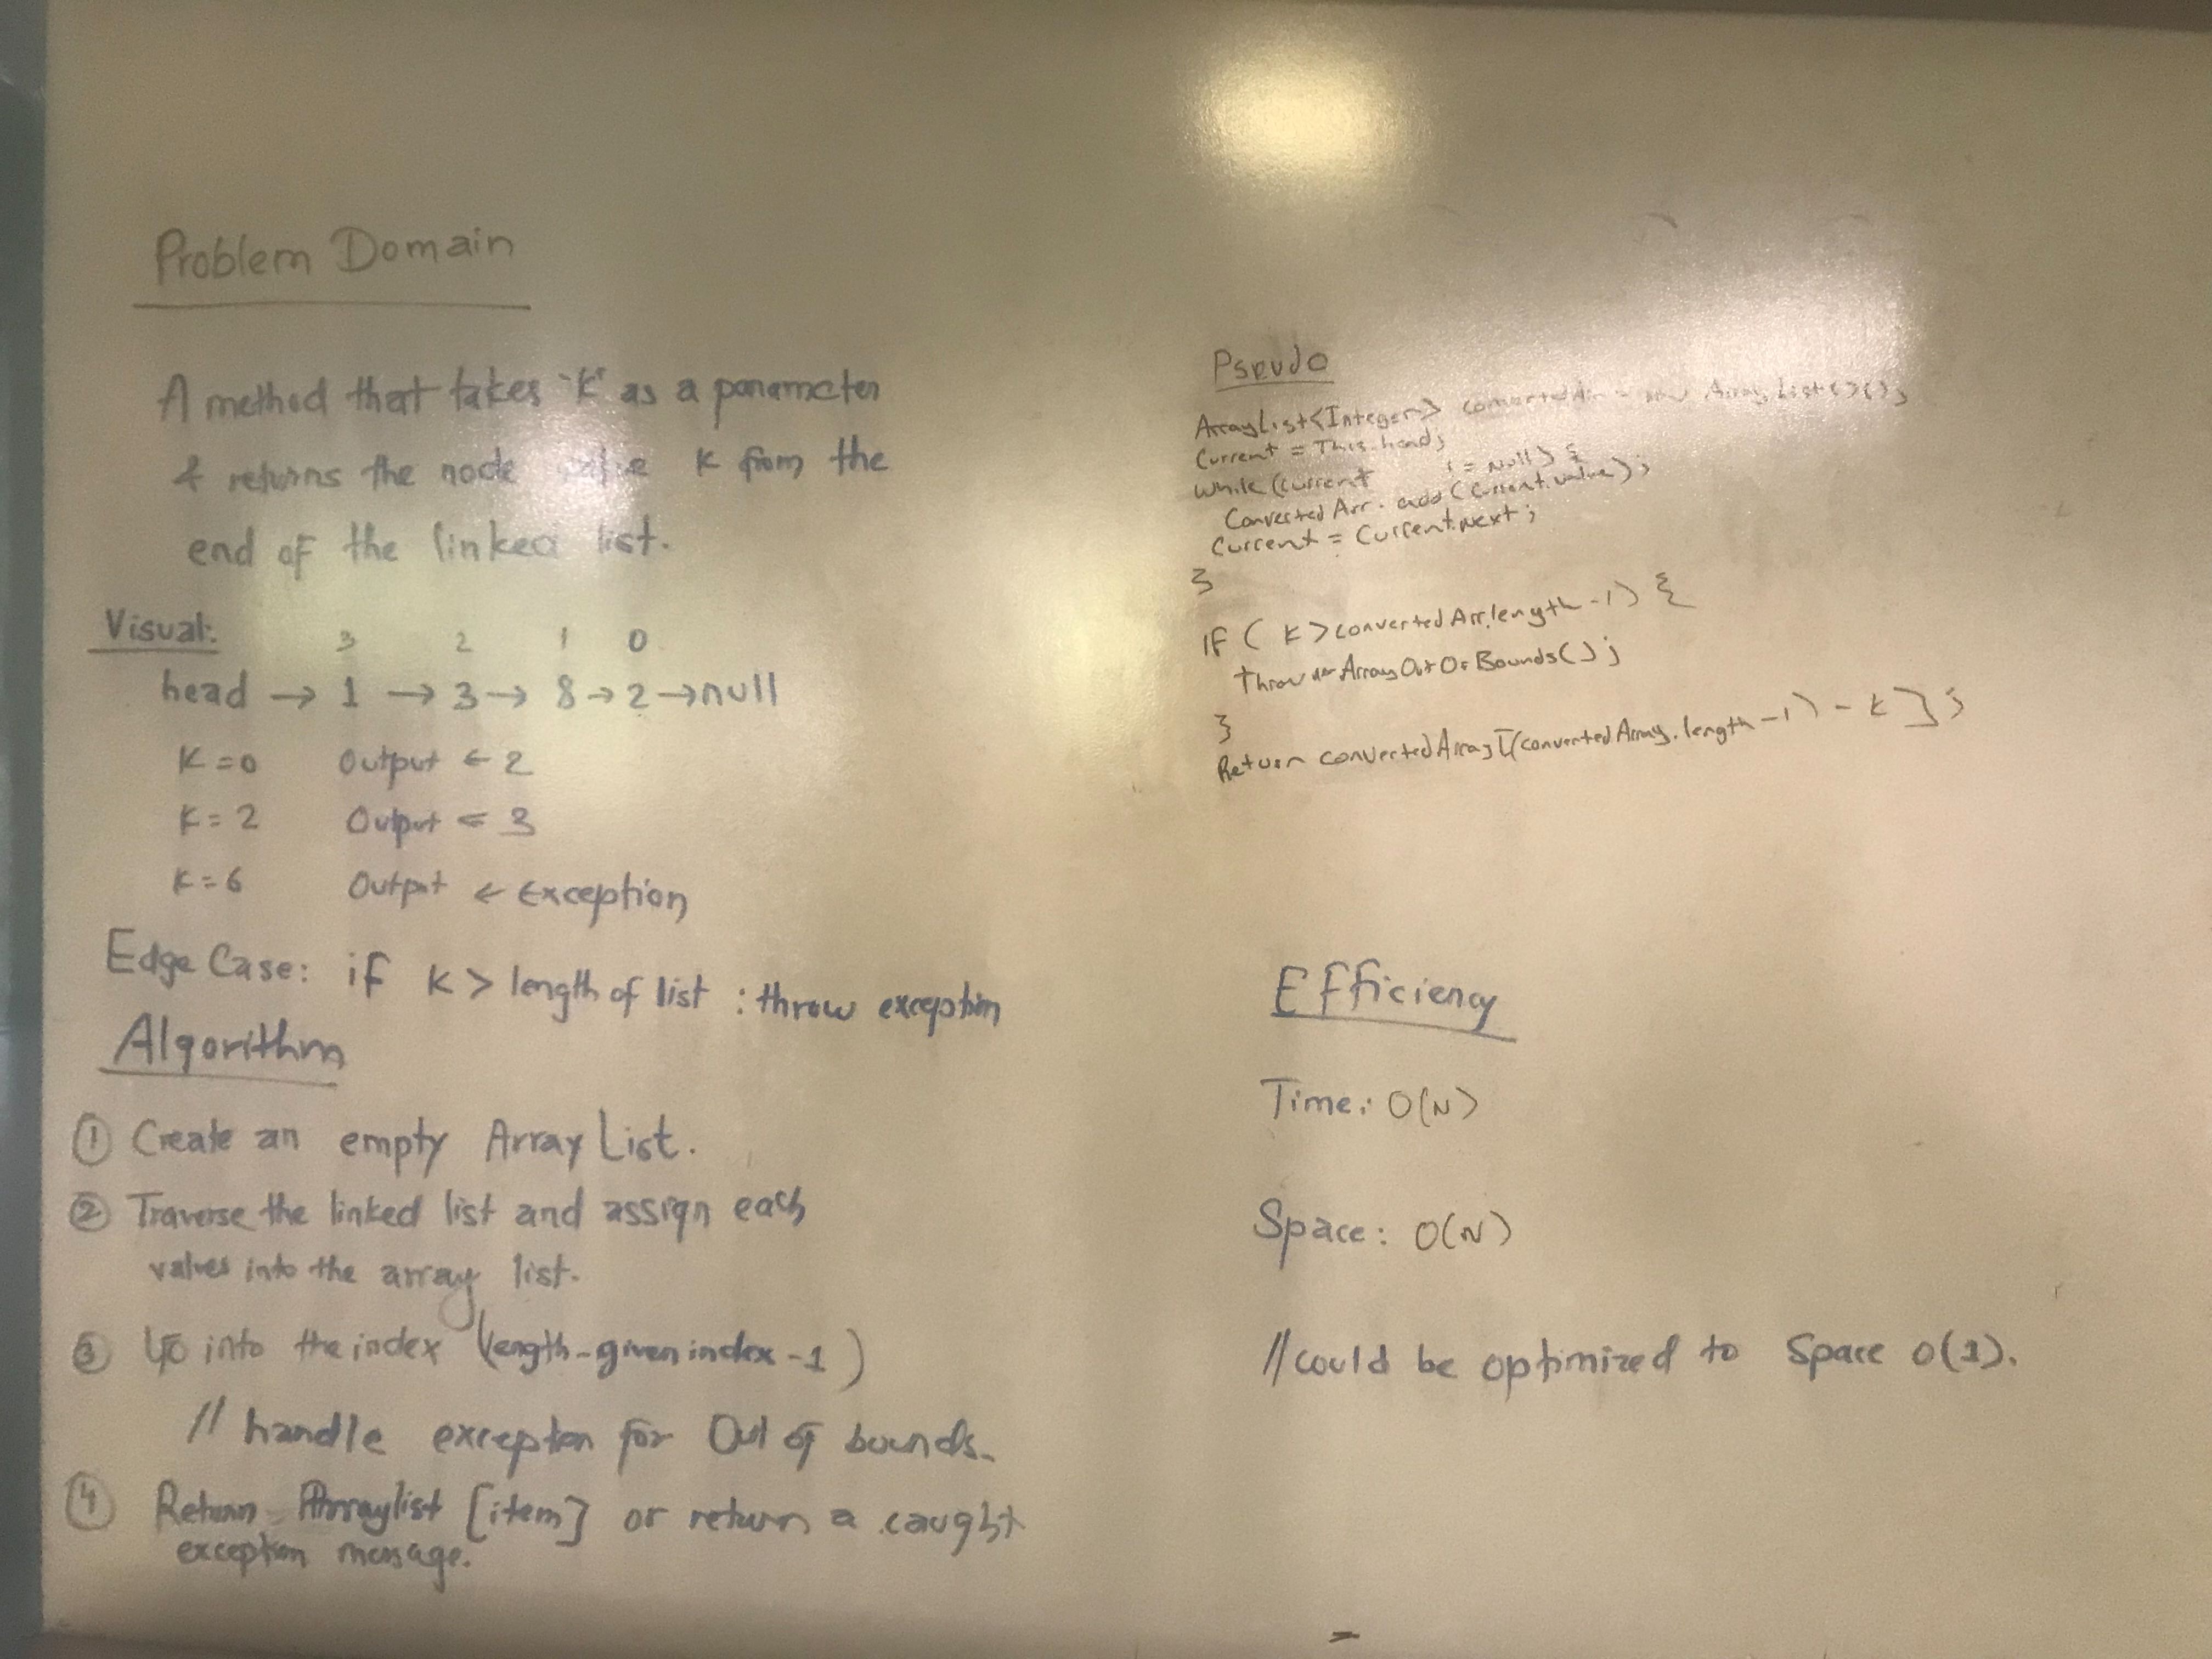 Problem Domain
A method that takes "K" as a parameter
& returns the node value K from the
end of the linked list.
Visual:
3 2 1 0
head → 1 → 3 → 8 → 2 → null
K = 0 Output ← 2
K = 2 Output ← 3
K = 6 Output ← Exception
Edge Case: if K > length of list : throw exception
Algorithm
① Create an empty Array List.
② Traverse the linked list and assign each
values into the array list.
③ Go into the index (length - given index - 1)
// handle exception for Out of bounds.
④ Return Arraylist [item] or return a caught
exception message.
Pseudo
ArrayList<Integer> convertedArr = new ArrayList<>();
Current = This.head;
while (current != Null) {
Converted Arr. add (Current.value);
Current = Current.Next;
}
IF ( K > converted Arr.length - 1) {
throw ArrayOutOfBounds();
}
Return convertedArray[(convertedArray.length - 1) - K];
Efficiency
Time: O(N)
Space: O(N)
// could be optimized to Space O(1).